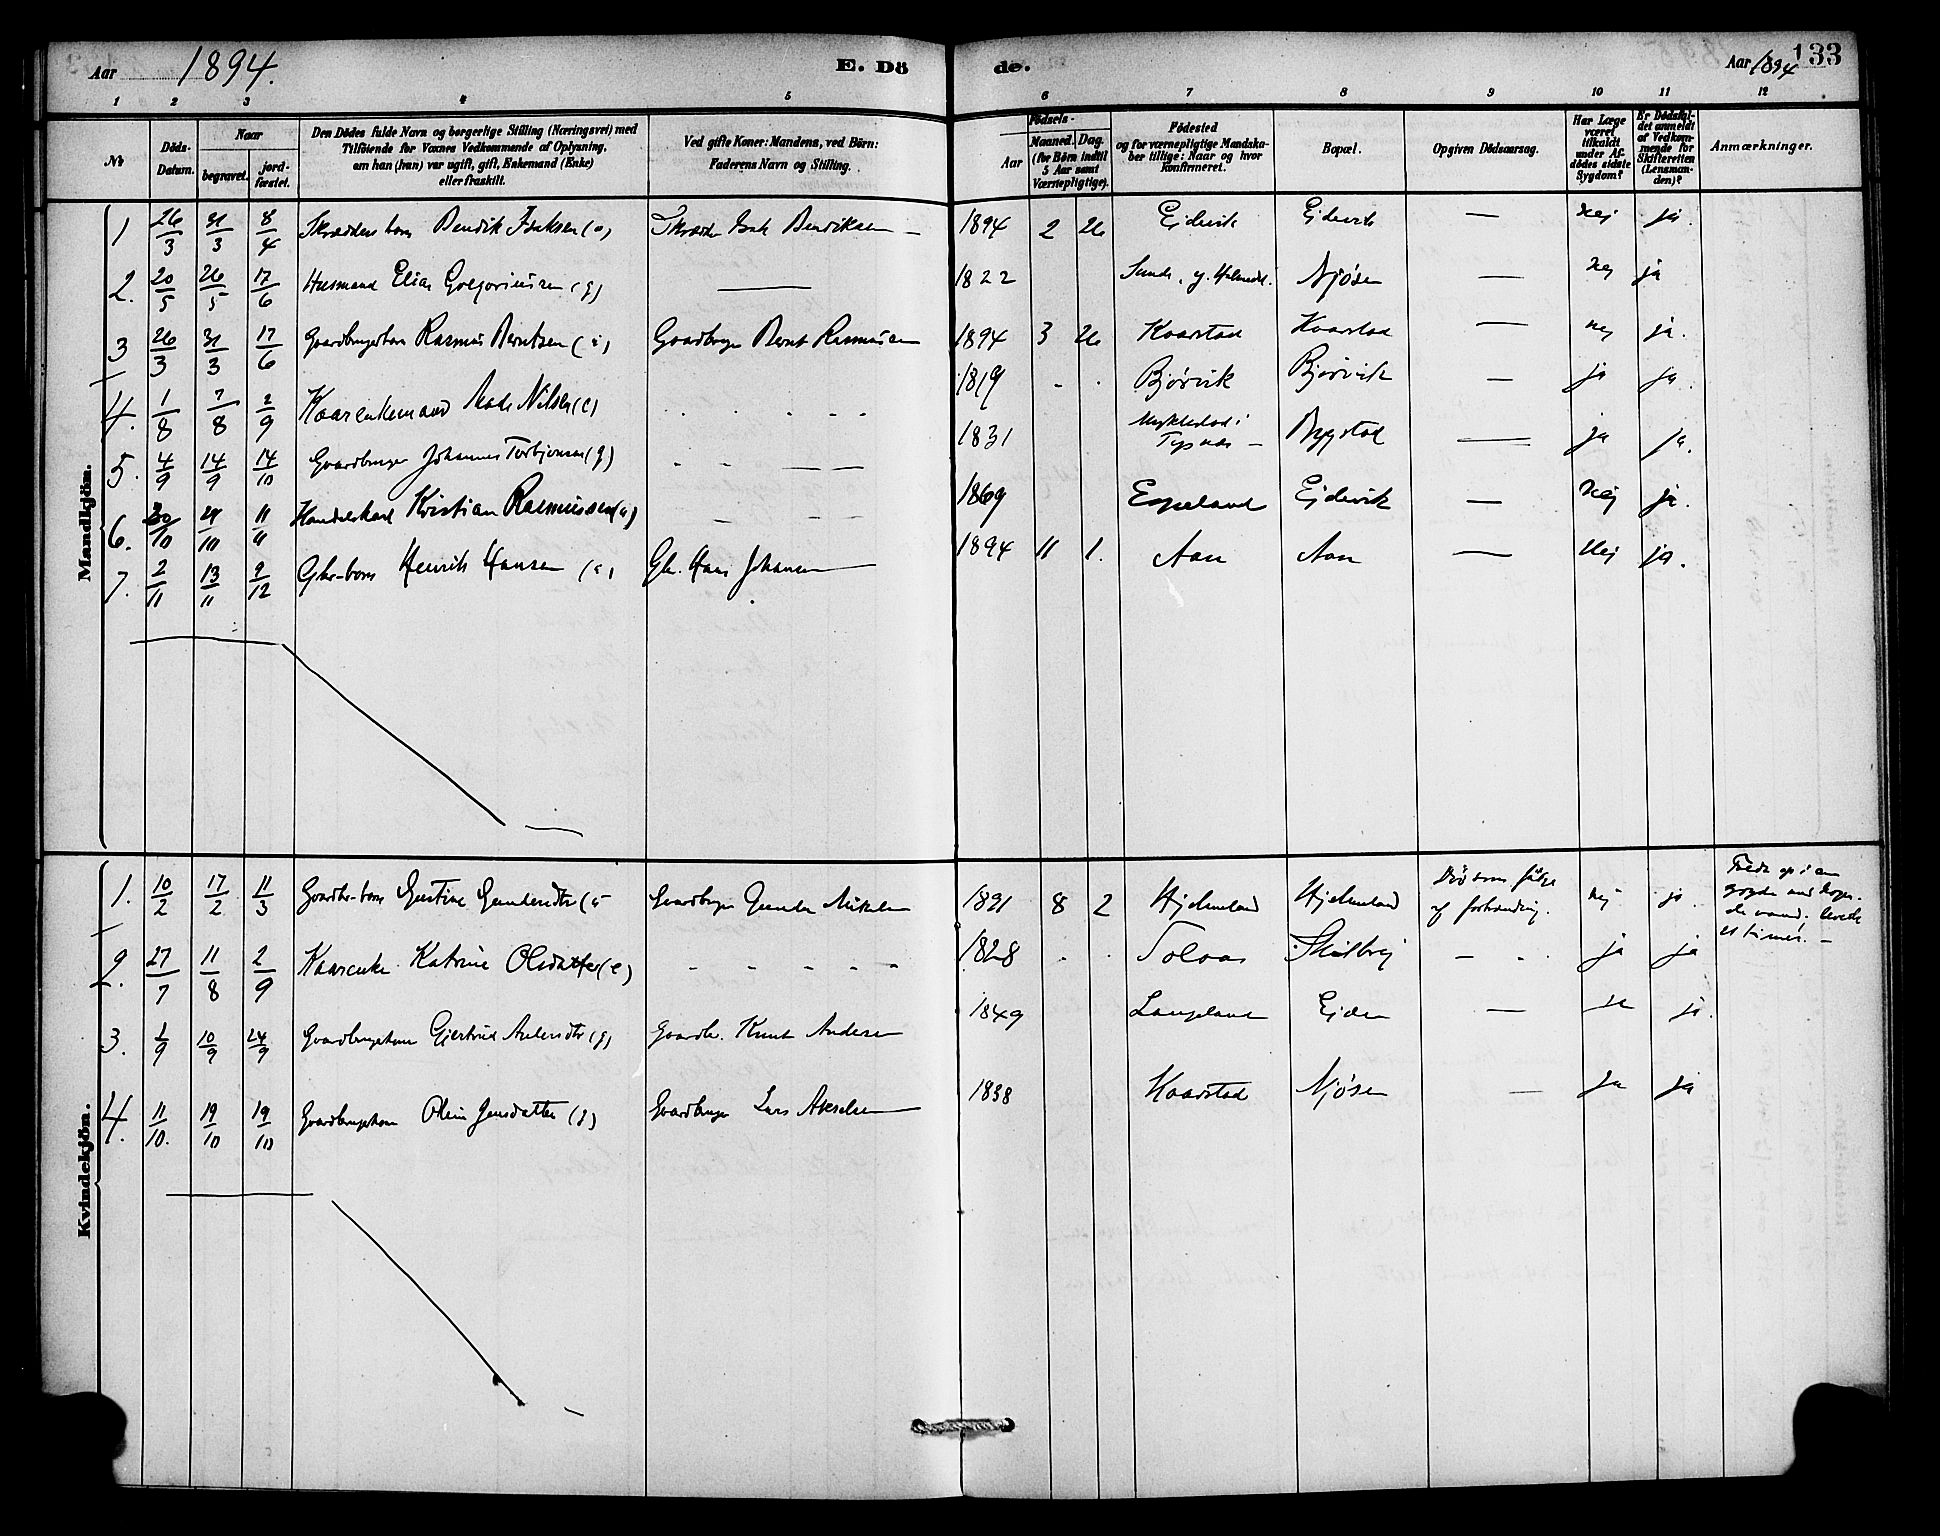 Aar 1894. E. Dö de. Aar 1894 133
1 2 3 4 5 6 7 8 9 10 11 12
No
Döds-Datum.
Naar
begravet.
jord-fæstet.
Den Dödes fulde Navn og borgerlige Stilling (Næringsvei) med
Tilföiende for Voxnes Vedkommende af Oplysning,
om han (hun) var ugift, gift, Enkemand (Enke)
eller fraskilt.
Ved gifte Koner: Mandens, ved Börn:
Faderens Navn og Stilling.
Födsels-
Aar
Maaned. Dag.
(for Börn indtil
5 Aar samt
Værnepligtige).
Födested
og for værnepligtige Mandska-
ber tillige: Naar og hvor
konfirmeret.
Bopæl.
Opgiven Dödsaarsag.
Har Læge
været
tilkaldt
under Af-
dödes sidste
Sygdom?
Er Dödsfal-
det anmeldt
af Vedkom-
mende for
Skifteretten
(Lensman-
den)?
Anmærkninger.
Mandkjön.
1 26/3 31/3 8/4 Skrædders barn Bendik Isaksen (u) Skrædder Isak Bendiksen – 1894 2 26 Ejdevik Ejdevik — Nej ja.
2. 20/5 26/5 17/6 Husmand Elias Gregoriussen (g) — 1822 Sunde, y. Holmedal. Njøsen — Nej ja
3 26/3 31/3 17/6 Gaardbrugerbarn Rasmus Berntsen (u) Gaardbruger Bernt Rasmussen 1894 3 26 Kvarstad Kvarstad — nej ja.
4. 1/8 7/8 2/9 Kaarenkemand Mads Nilsen (e) 1819 Bjørvik Bjørvik — ja ja.
5. 4/9 14/9 14/10 Gaardbruger Johannes Torbjørnsen (g) 1831 Myklestad i
Bygstad — ja ja.
6. 20/10 29/10 11/11 Handelskarl Kristian Rasmussen (u) 1869 Espeland Ejdevik — Nej ja.
7. 2/11 13/11 2/12 Gbr-barn Henrik Hansen (u) Gbr. Hans Johansen 1894 11 1. Aan Aan — Nej ja.
Kvindekjön.
1. 10/2 17/2 11/3 Gaardbr-barn Gjertine Gundersdtr (u Gaardbruger Gunder Mikkelsen 1891 8 2 Hjelmeland Hjelmeland Død som følge
af forbrænding. nej ja. Faldt op i en
gryde med kogen-
de vand. levede
11 timer. –
2. 27/7 11/8 2/9 Kaarenke Katrine Olsdatter (e) 1828 Solvaa Skilbrej ja ja
3. 1/9 10/9 24/9 Gaardbrugerkone Gjertrud Andersdtr (g) Gaardbr. Knut Andersen 1849 Langeland Ejden — ja.
4. 11/10. 19/10 19/10 Gaardbrugerkone Oline Jensdatter (g) Gaardbruger Lars Akselsen 1838 Kvarstad Njøsen — ja ja